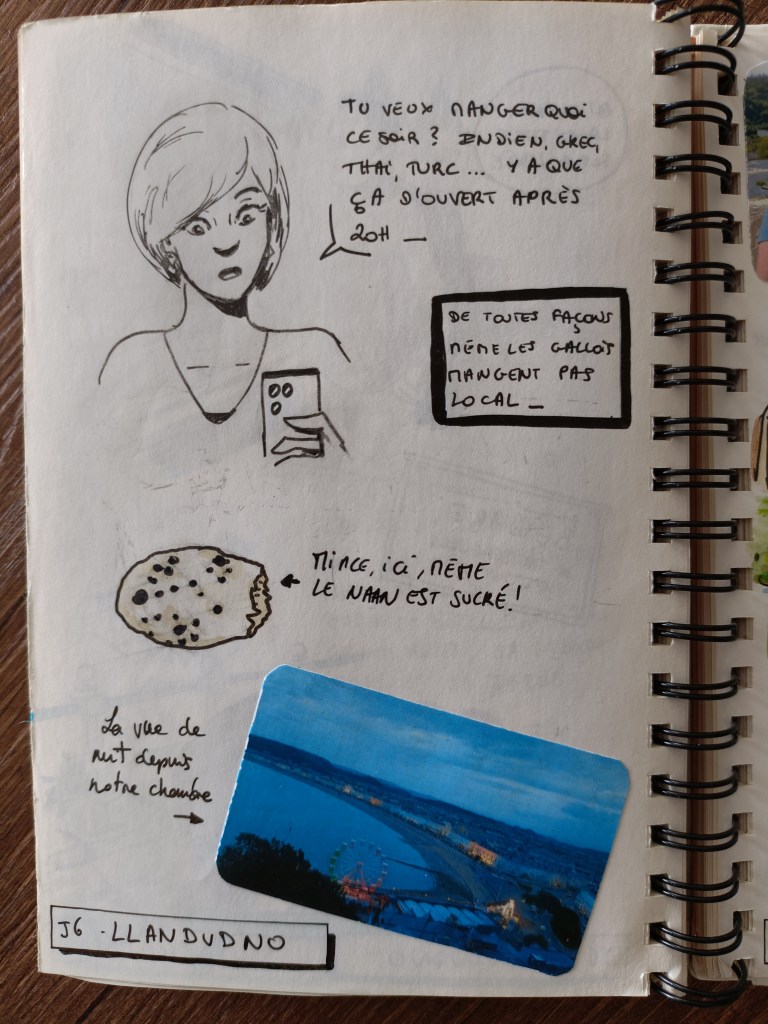 TU VEUX MANGER QUOI
CE SOIR ? INDIEN, GREC,
THAÏ, TURC... Y A QUE
ÇA D'OUVERT APRÈS
20H _
DE TOUTES FAÇONS
MÊME LES GALLOIS
MANGENT PAS
LOCAL _
MINCE, ICI, MÊME
LE NAAN EST SUCRÉ !
La vue de
nuit depuis
notre chambre
J6 - LLANDUDNO